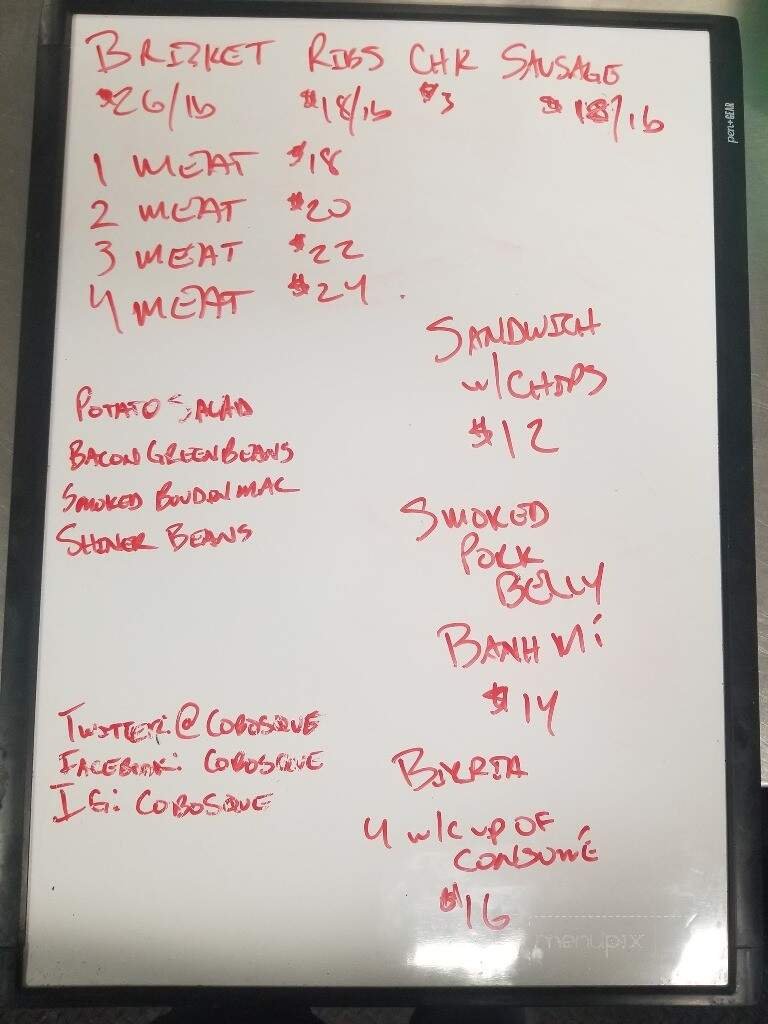 BRISKET RIBS CHK SAUSAGE
$26/lb $18/lb $3 $18/lb
1 MEAT $18
2 MEAT $20
3 MEAT $22
4 MEAT $24
SANDWICH
w/ CHIPS
$12
POTATO SALAD
BACON GREEN BEANS
SMOKED BOUDIN MAC
SHINER BEANS
SMOKED
PORK
BELLY
BANH Mi
$14
TWITTER: @COBOSQUE
FACEBOOK: COBOSQUE
IG: COBOSQUE
BIRRIA
4 w/ CUP OF
CONSOMÉ
$16
pen+GEAR
menupix